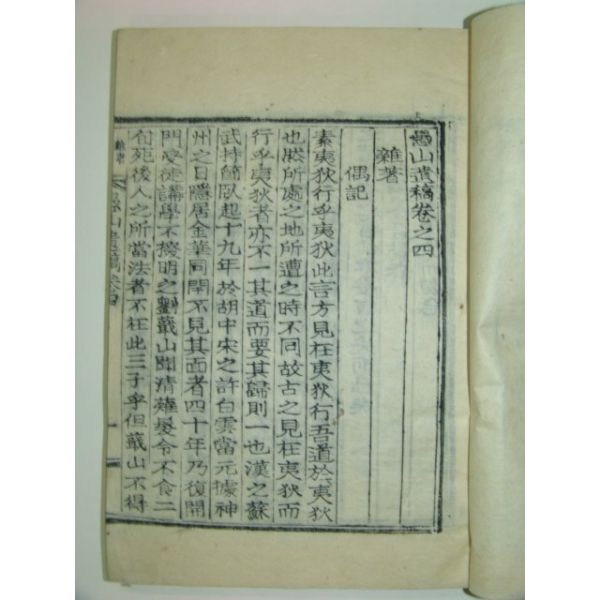 愚山遺稿卷之四
雜著
偶記
素夷狄行乎夷狄此言方見在夷狄行吾道於夷狄
也然所處之地所遭之時不同故古之見在夷狄而
行乎夷狄者亦不一其道而要其歸則一也漢之蘇
武持節臥起十九年於胡中宋之許白雲當元據神
州之日隱居金華同閈不見其面者四十年乃復開
門受徒講學不擾明之劉蕺山聞清薙髮令不食二
旬死後人之所當法者不在此三子乎但蕺山不得
山遺稿